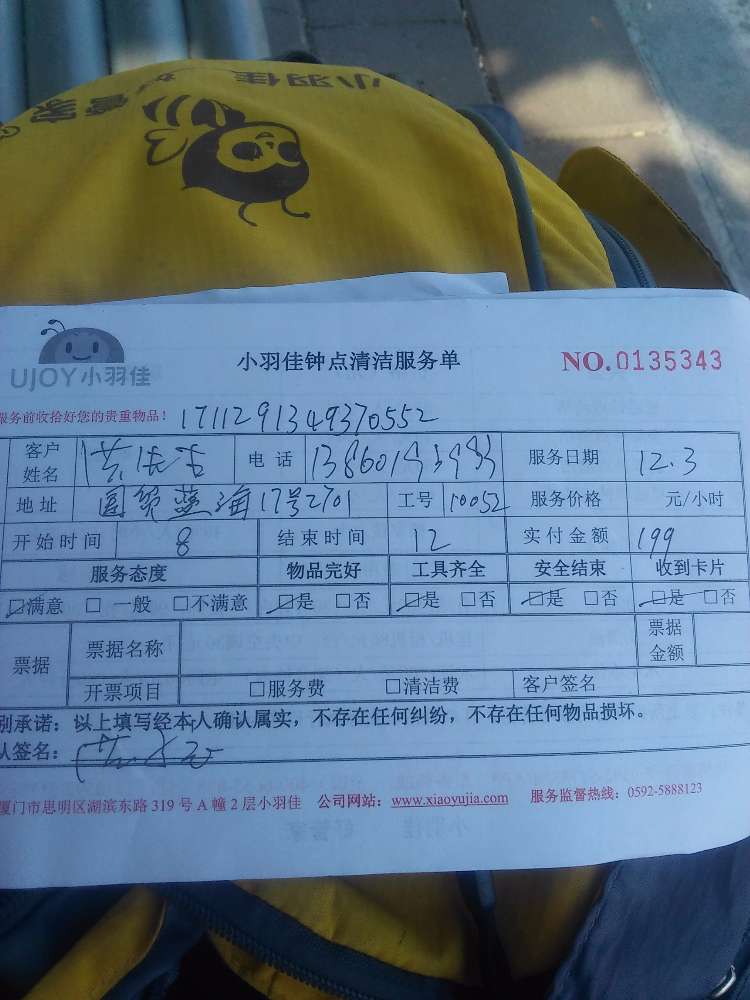 小羽佳
管家
UJOY小羽佳
小羽佳钟点清洁服务单
NO.0135343
服务前收拾好您的贵重物品！ 1711291349370552
客户姓名 电话 服务日期 12.3
地址 国贸蓝海17号2701 工号 10052 服务价格 元/小时
开始时间 8 结束时间 12 实付金额 199
服务态度 物品完好 工具齐全 安全结束 收到卡片
☑满意 □一般 □不满意 ☑是 □否 ☑是 □否 ☑是 □否 ☑是 □否
票据 票据名称 票据金额
开票项目 □服务费 □清洁费 客户签名
别承诺：以上填写经本人确认属实，不存在任何纠纷，不存在任何物品损坏。
认签名：
厦门市思明区湖滨东路319号A幢2层小羽佳 公司网站：www.xiaoyujia.com 服务监督热线：0592-5888123